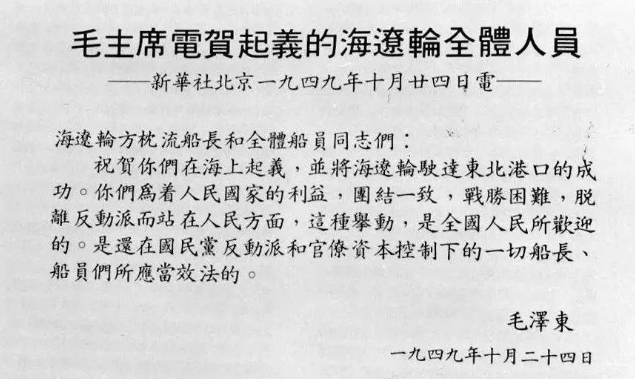 毛主席電賀起義的海遼輪全體人員
——新華社北京一九四九年十月廿四日電——
海遼輪方枕流船長和全體船員同志們：
祝賀你們在海上起義，並將海遼輪駛達東北港口的成
功。你們爲着人民國家的利益，團結一致，戰勝困難，脱
離反動派而站在人民方面，這種舉動，是全國人民所歡迎
的。是還在國民黨反動派和官僚資本控制下的一切船長、
船員們所應當效法的。
毛澤東
一九四九年十月二十四日